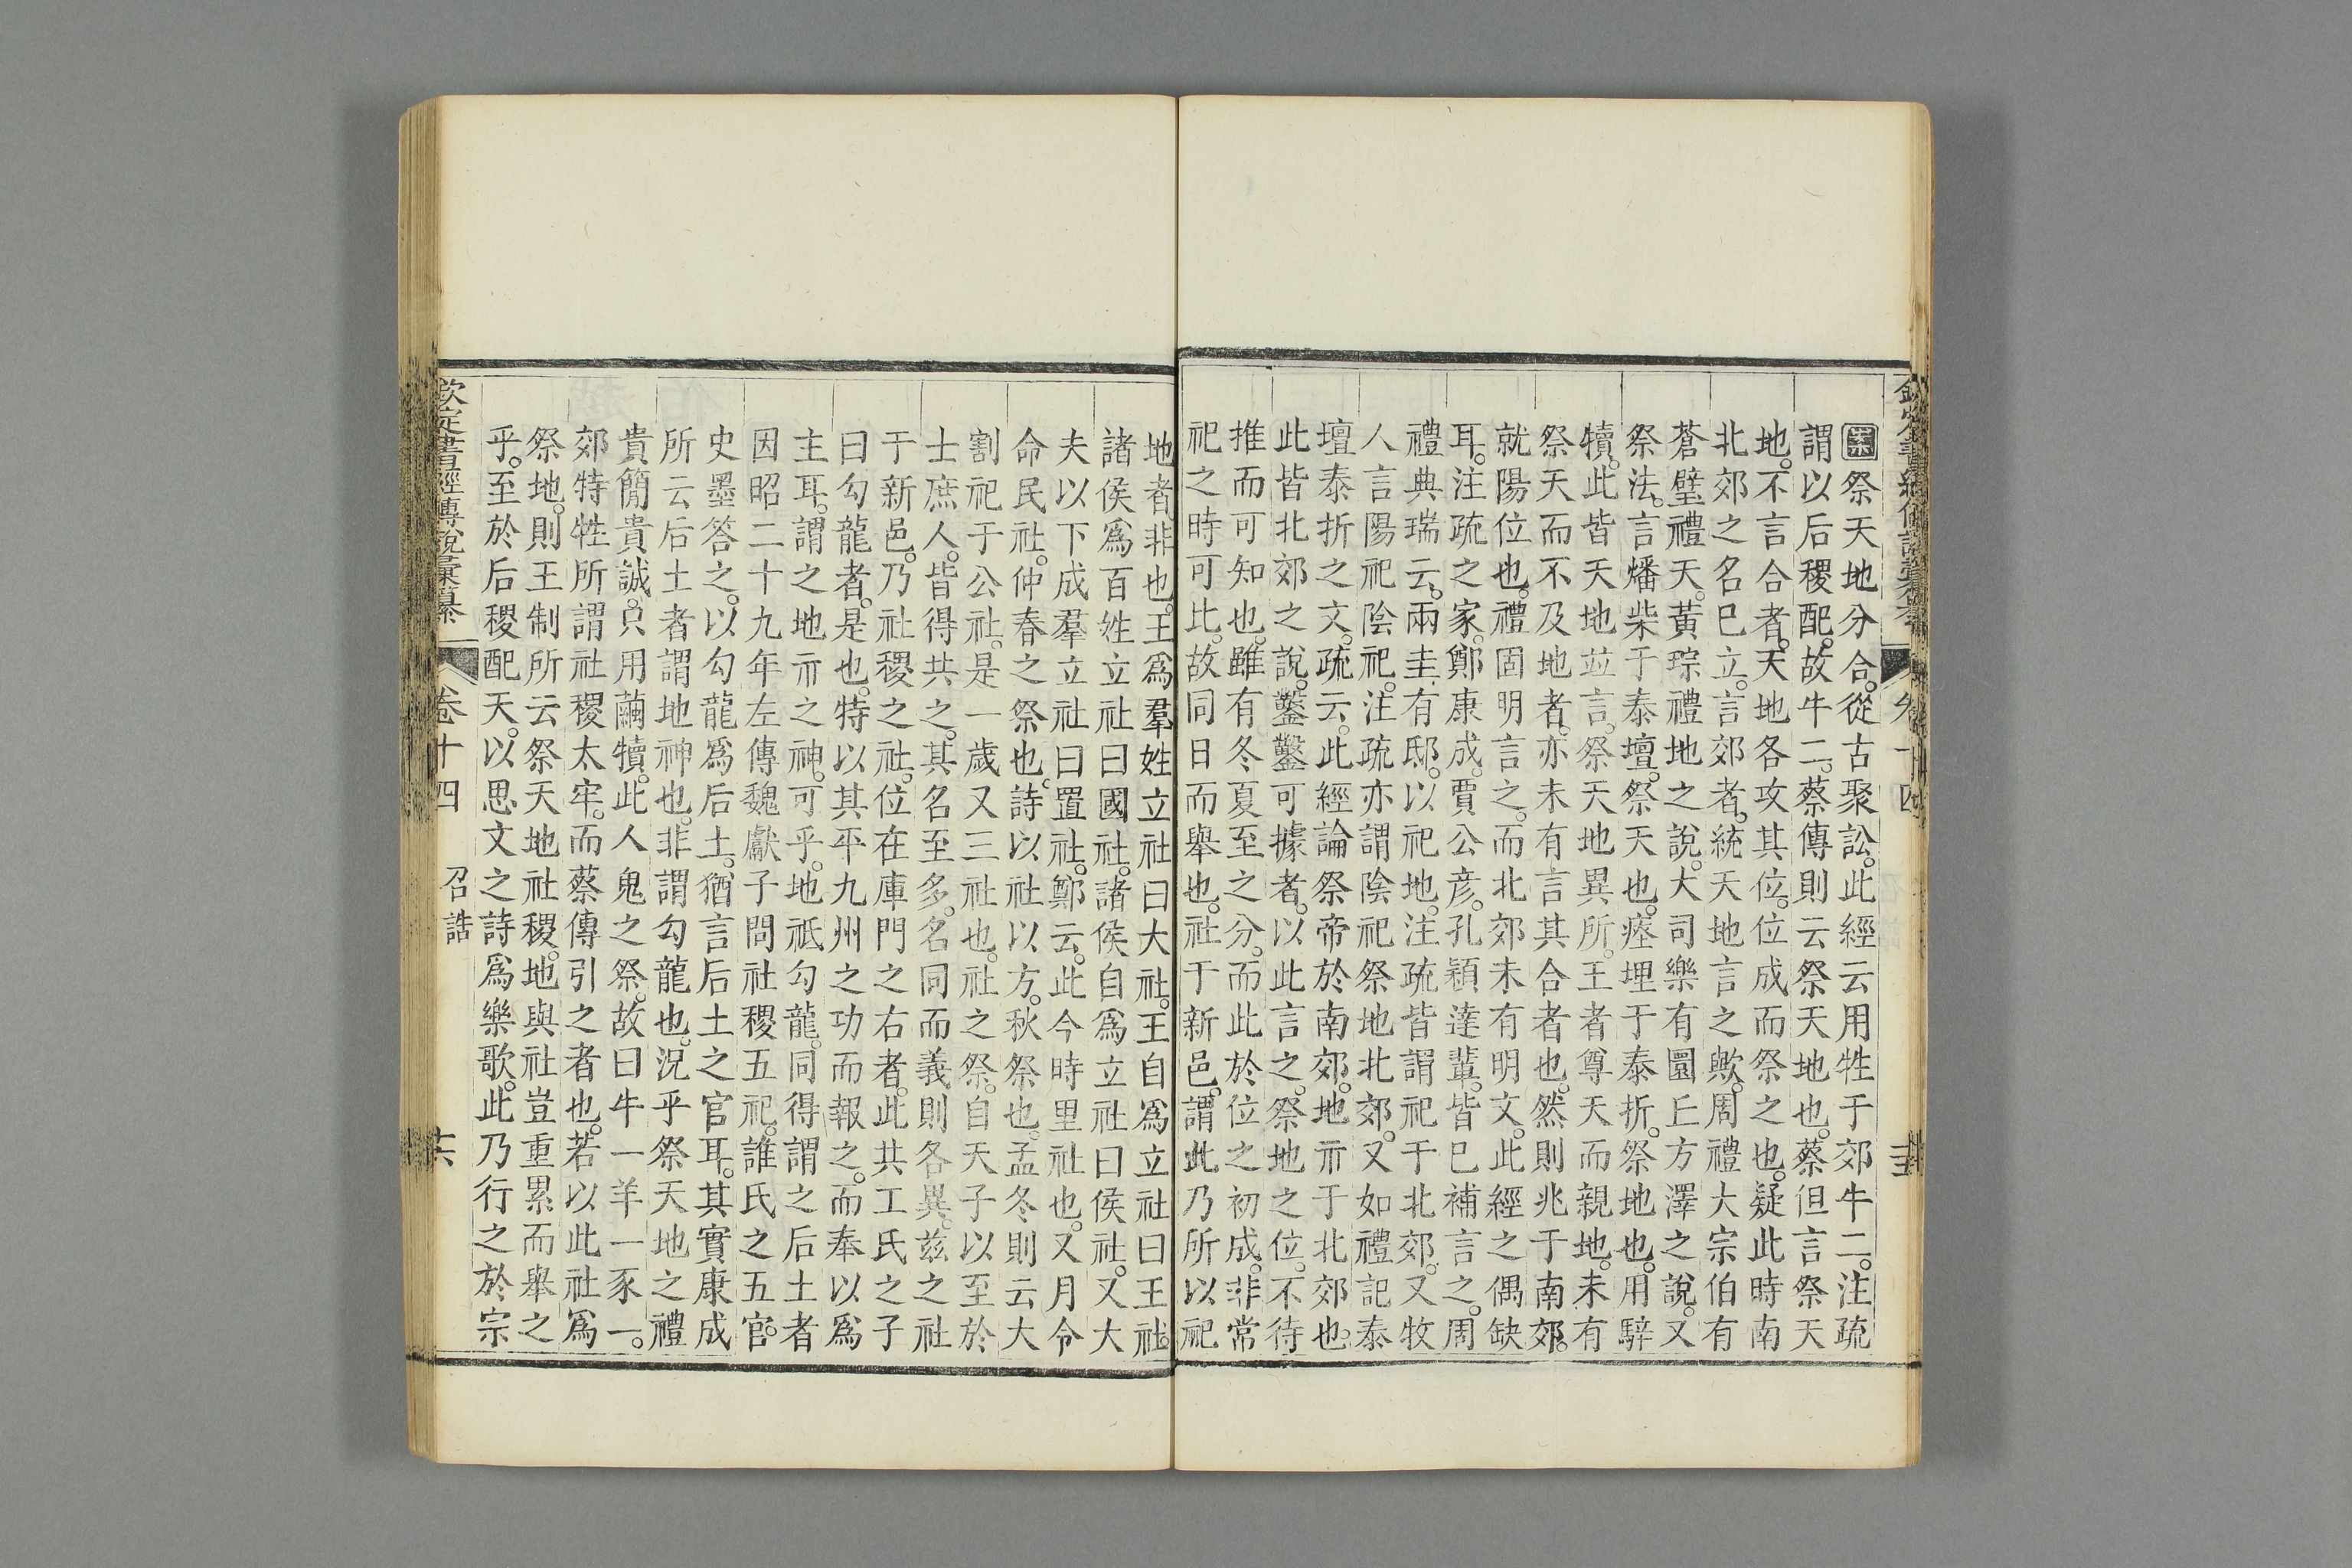 案祭天地分合。從古聚訟。此經云用牲于郊牛二。注疏
謂以后稷配。故牛二。蔡傳則云祭天地也。蔡但言祭天
地。不言合者。天地各攻其位。位成而祭之也。疑此時南
北郊之名已立。言郊者。統天地言之歟。周禮大宗伯有
蒼璧禮天。黃琮禮地之說。大司樂有圜丘方澤之說。又
祭法。言燔柴于泰壇。祭天也。瘞埋于泰折。祭地也。用騂
犢。此皆天地並言。祭天地異所。王者尊天而親地。未有
祭天而不及地者。亦未有言其合者也。然則兆于南郊。
就陽位也。禮固明言之。而北郊未有明文。此經之偶缺
耳。注疏之家。鄭康成。賈公彥。孔穎達輩。皆已補言之。周
禮典瑞云。兩圭有邸。以祀地。注疏皆謂祀于北郊。又牧
人言陽祀陰祀。注疏亦謂陰祀祭地北郊。又如禮記泰
壇泰折之文。疏云。此經論祭帝於南郊。地示于北郊也。
此皆北郊之說。鑿鑿可據者。以此言之。祭地之位。不待
推而可知也。雖有冬夏至之分。而此於位之初成。非常
祀之時可比。故同日而舉也。社于新邑。謂此乃所以祀
地者非也。王爲羣姓立社曰大社。王自爲立社曰王社。
諸侯爲百姓立社曰國社。諸侯自爲立社曰侯社。又大
夫以下成羣立社曰置社。鄭云。此今時里社也。又月令
命民社。仲春之祭也。詩以社以方。秋祭也。孟冬則云大
割祀于公社。是一歲又三社也。社之祭。自天子以至於
士庶人。皆得共之。其名至多。名同而義則各異。茲之社
于新邑。乃社稷之社。位在庫門之右者。此共工氏之子
曰勾龍者。是也。特以其平九州之功而報之。而奉以爲
主耳。謂之地示之神。可乎。地祇勾龍。同得謂之后土者
因昭二十九年左傳魏獻子問社稷五祀。誰氏之五官。
史墨答之。以勾龍爲后土。猶言后土之官耳。其實康成
所云后土者謂地神也。非謂勾龍也。況乎祭天地之禮
貴簡貴誠。只用繭犢。此人鬼之祭。故曰牛一羊一豕一。
郊特牲所謂社稷太牢。而蔡傳引之者也。若以此社爲
祭地。則王制所云祭天地社稷。地與社豈重累而舉之
乎。至於后稷配天。以思文之詩爲樂歌。此乃行之於宗
欽定書經傳說彙纂 卷十四 召誥 十六